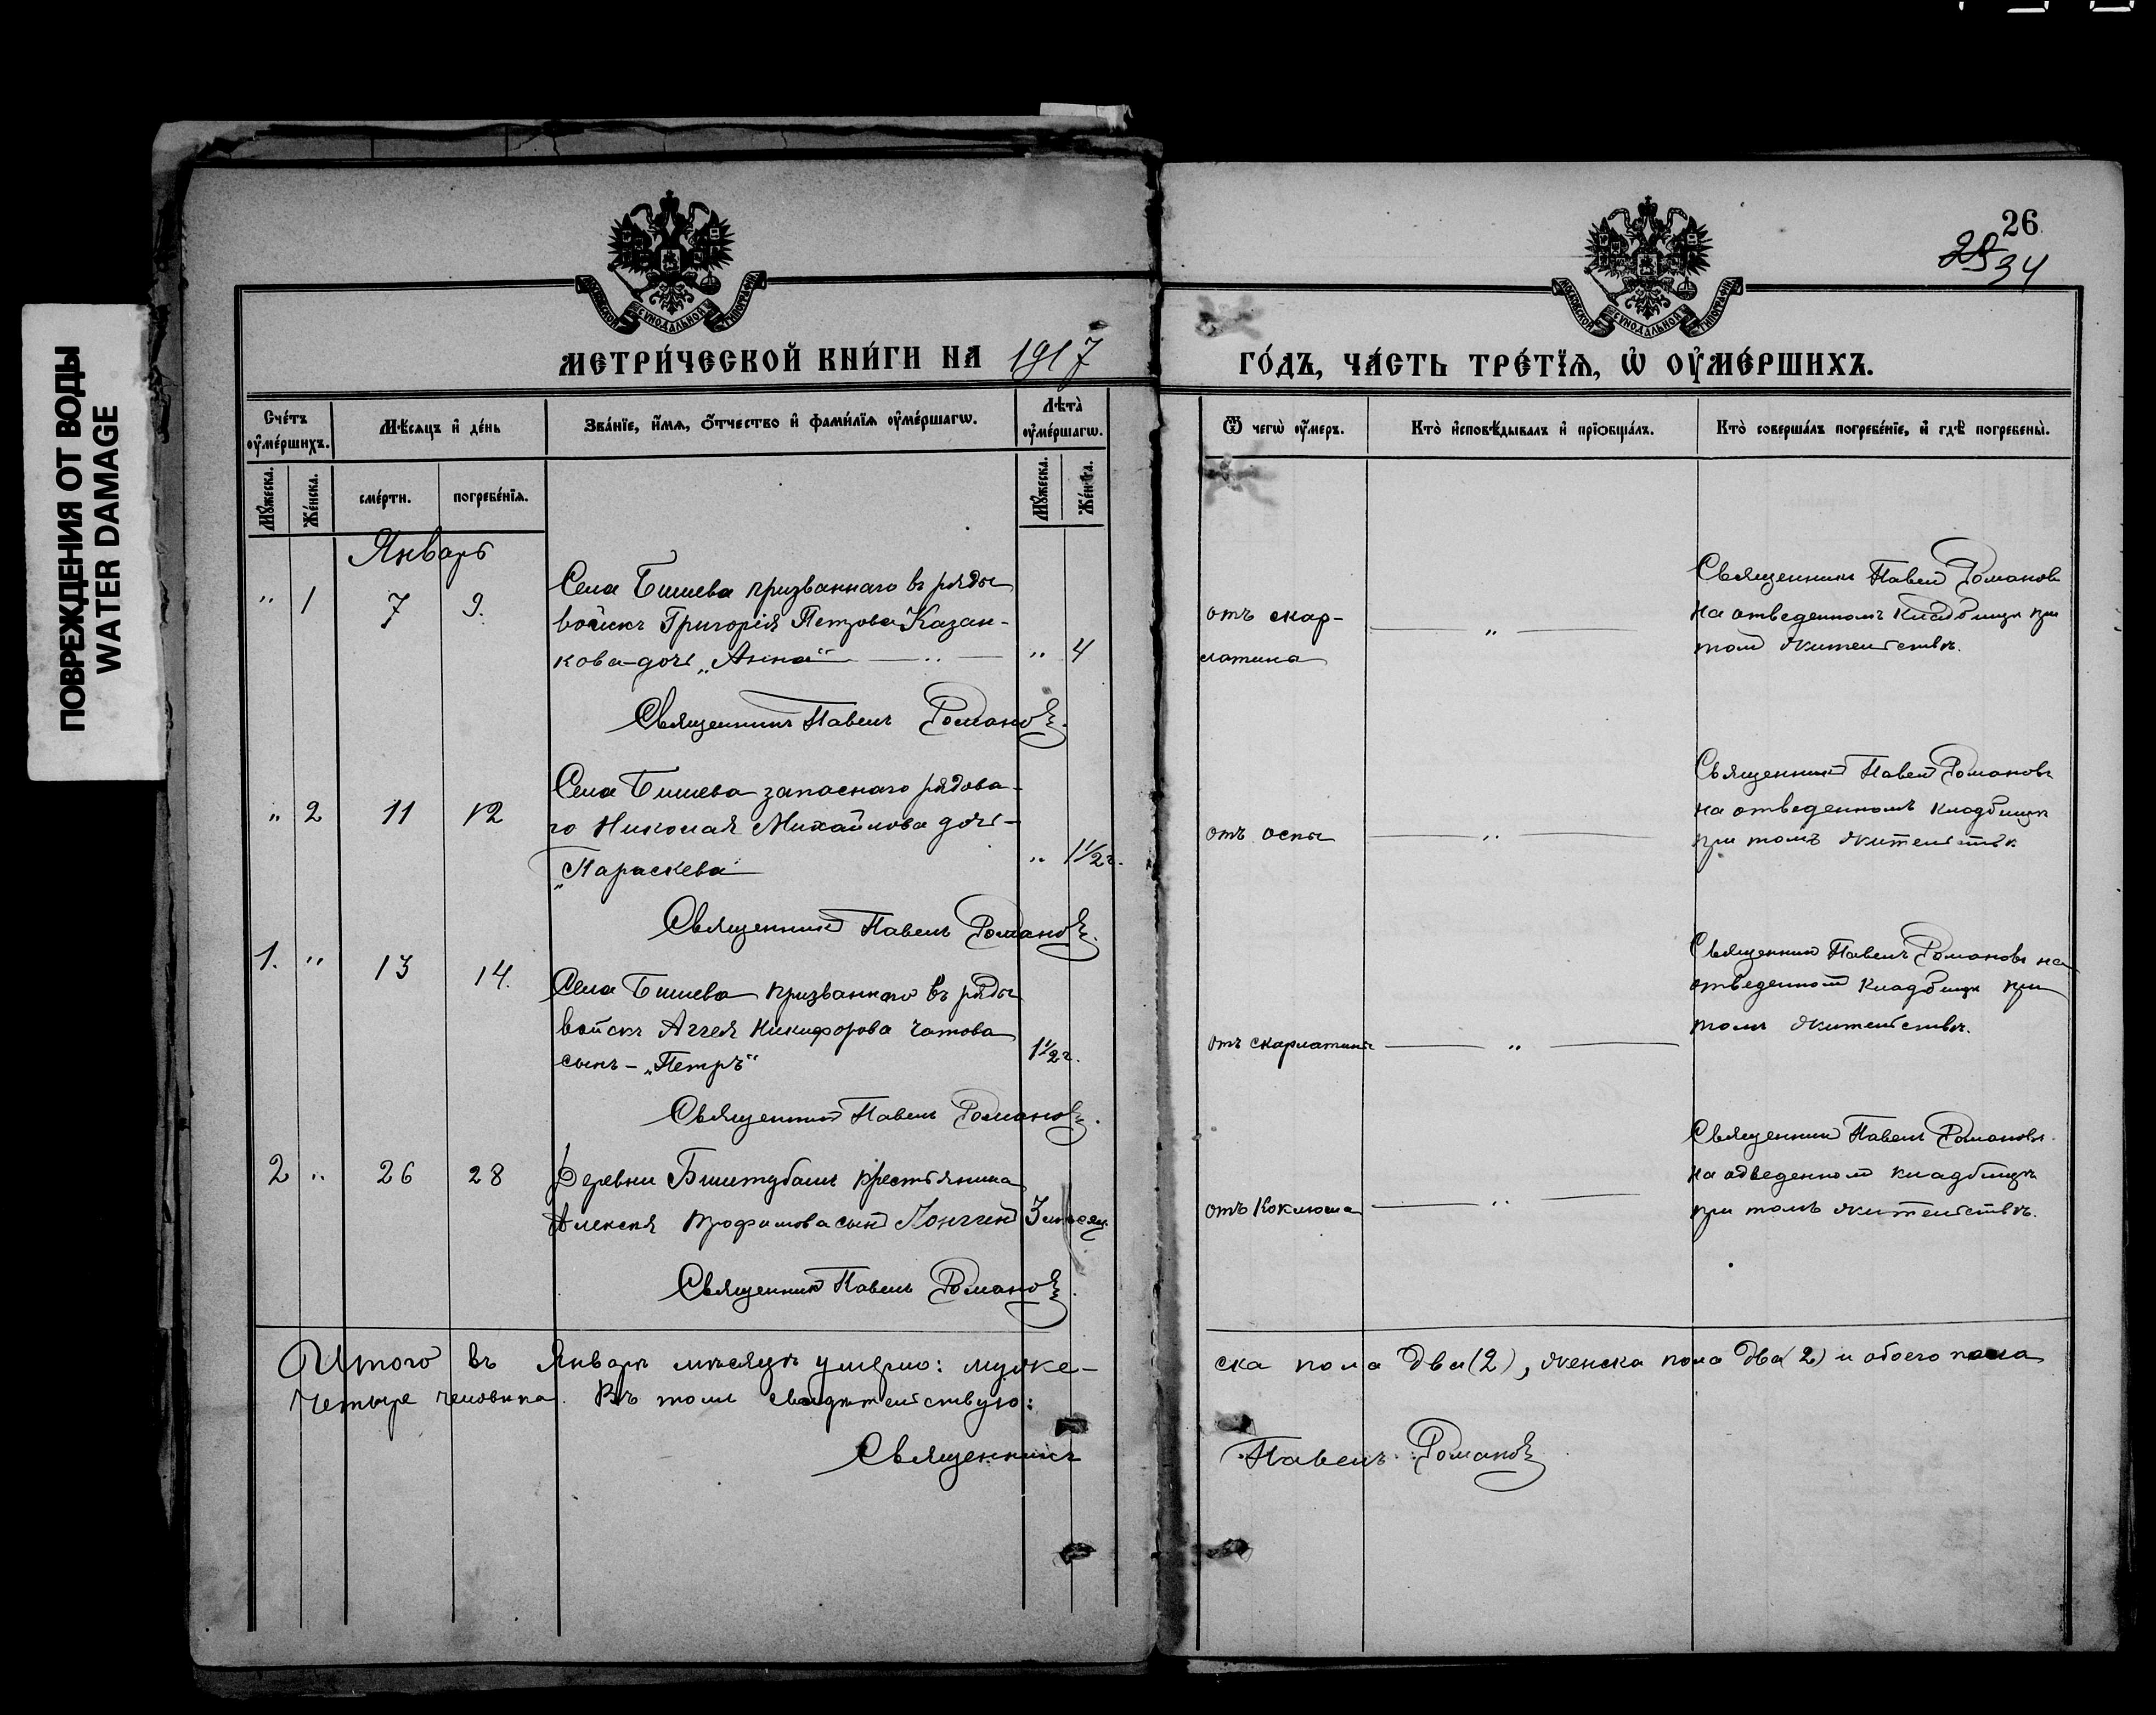 ПОВРЕЖДЕНИЯ ОТ ВОДЫ
WATER DAMAGE
26
25 34
МОСКОВСКОЙ СѴНОДАЛЬНОЙ ТИПОГРАФІИ
МОСКОВСКОЙ СѴНОДАЛЬНОЙ ТИПОГРАФІИ
МЕТРИ́ЧЕСКОЙ КНИ́ГИ НА 1917
ГО́ДЪ, ЧА́СТЬ ТРЕ́ТЇѦ, Ѡ҆ ОУ҆МЕ́РШИХЪ.
Сче́тъ оу҆ме́ршихъ.
Мѣ́сѧцъ и҆ де́нь
Зва́нїе, и҆́мѧ, ѻ҆́тчество и҆ фами́лїѧ оу҆ме́ршагѡ.
Лѣта̀ оу҆ме́ршагѡ.
Ѿ чегѡ̀ оу҆́меръ.
Кто̀ и҆сповѣ́дывалъ и҆ прїѡбща́лъ.
Кто̀ соверша́лъ погребе́нїе, и҆ гдѣ̀ погребены̀.
Мꙋ́жеска.
Же́нска.
сме́рти.
погребе́нїѧ.
Мꙋ́жеска.
Же́нска.
Январь
" 1 7 9.
Села Бишева призваннаго въ ряды
войскъ Григорія Петрова Казан-
кова-дочь „Анна" " 4
Священникъ Павелъ Романовъ.
отъ скар-
латина
"
Священникъ Павелъ Романовъ
на отведенномъ кладбищѣ при
томъ жительствѣ.
" 2 11 12
Села Бишева запаснаго рядова-
го Николая Михайлова дочь-
„Параскева " 1 1/2 г.
Священникъ Павелъ Романовъ.
отъ оспы
"
Священникъ Павелъ Романовъ
на отведенномъ кладбищѣ
при томъ жительствѣ
1. " 13 14.
Села Бишева призваннаго въ ряды
войскъ Аггея Никифорова Чатова
сынъ - „Петръ" 1 1/2 г.
Священникъ Павелъ Романовъ.
отъ скарлатины
"
Священникъ Павелъ Романовъ на
отведенномъ кладбищѣ при
томъ жительствѣ.
2 " 26 28
Деревни Биштубашъ крестьянина
Алексѣя Трофимова сынъ Лонгинъ 3 мѣсяц
Священникъ Павелъ Романовъ.
отъ Коклюша
"
Священникъ Павелъ Романовъ.
на одведенномъ кладбищѣ
при томъ жительствѣ.
Итого въ Январѣ мѣсяцѣ умерло: муже-
ска пола два (2), женска пола два (2) и обоего пола
четыре человѣка. Въ томъ свидѣтельствую:
Священникъ Павелъ Романовъ